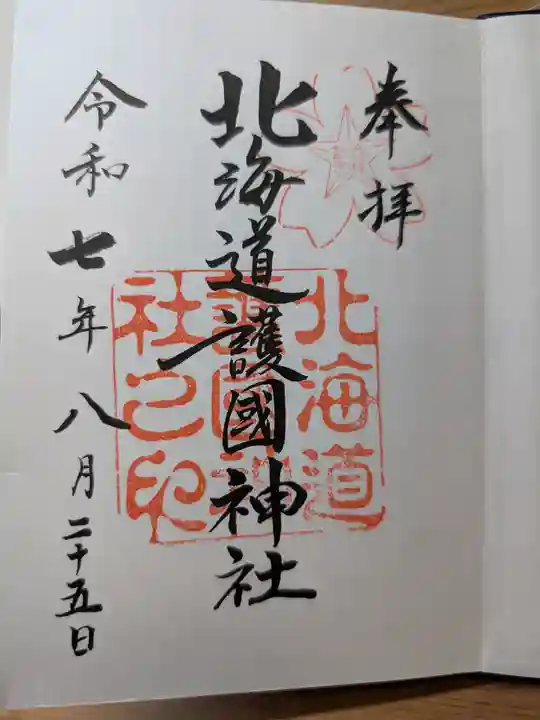 奉拝
北海道護國神社
北海道
護國神
社之印
令和七年八月二十五日